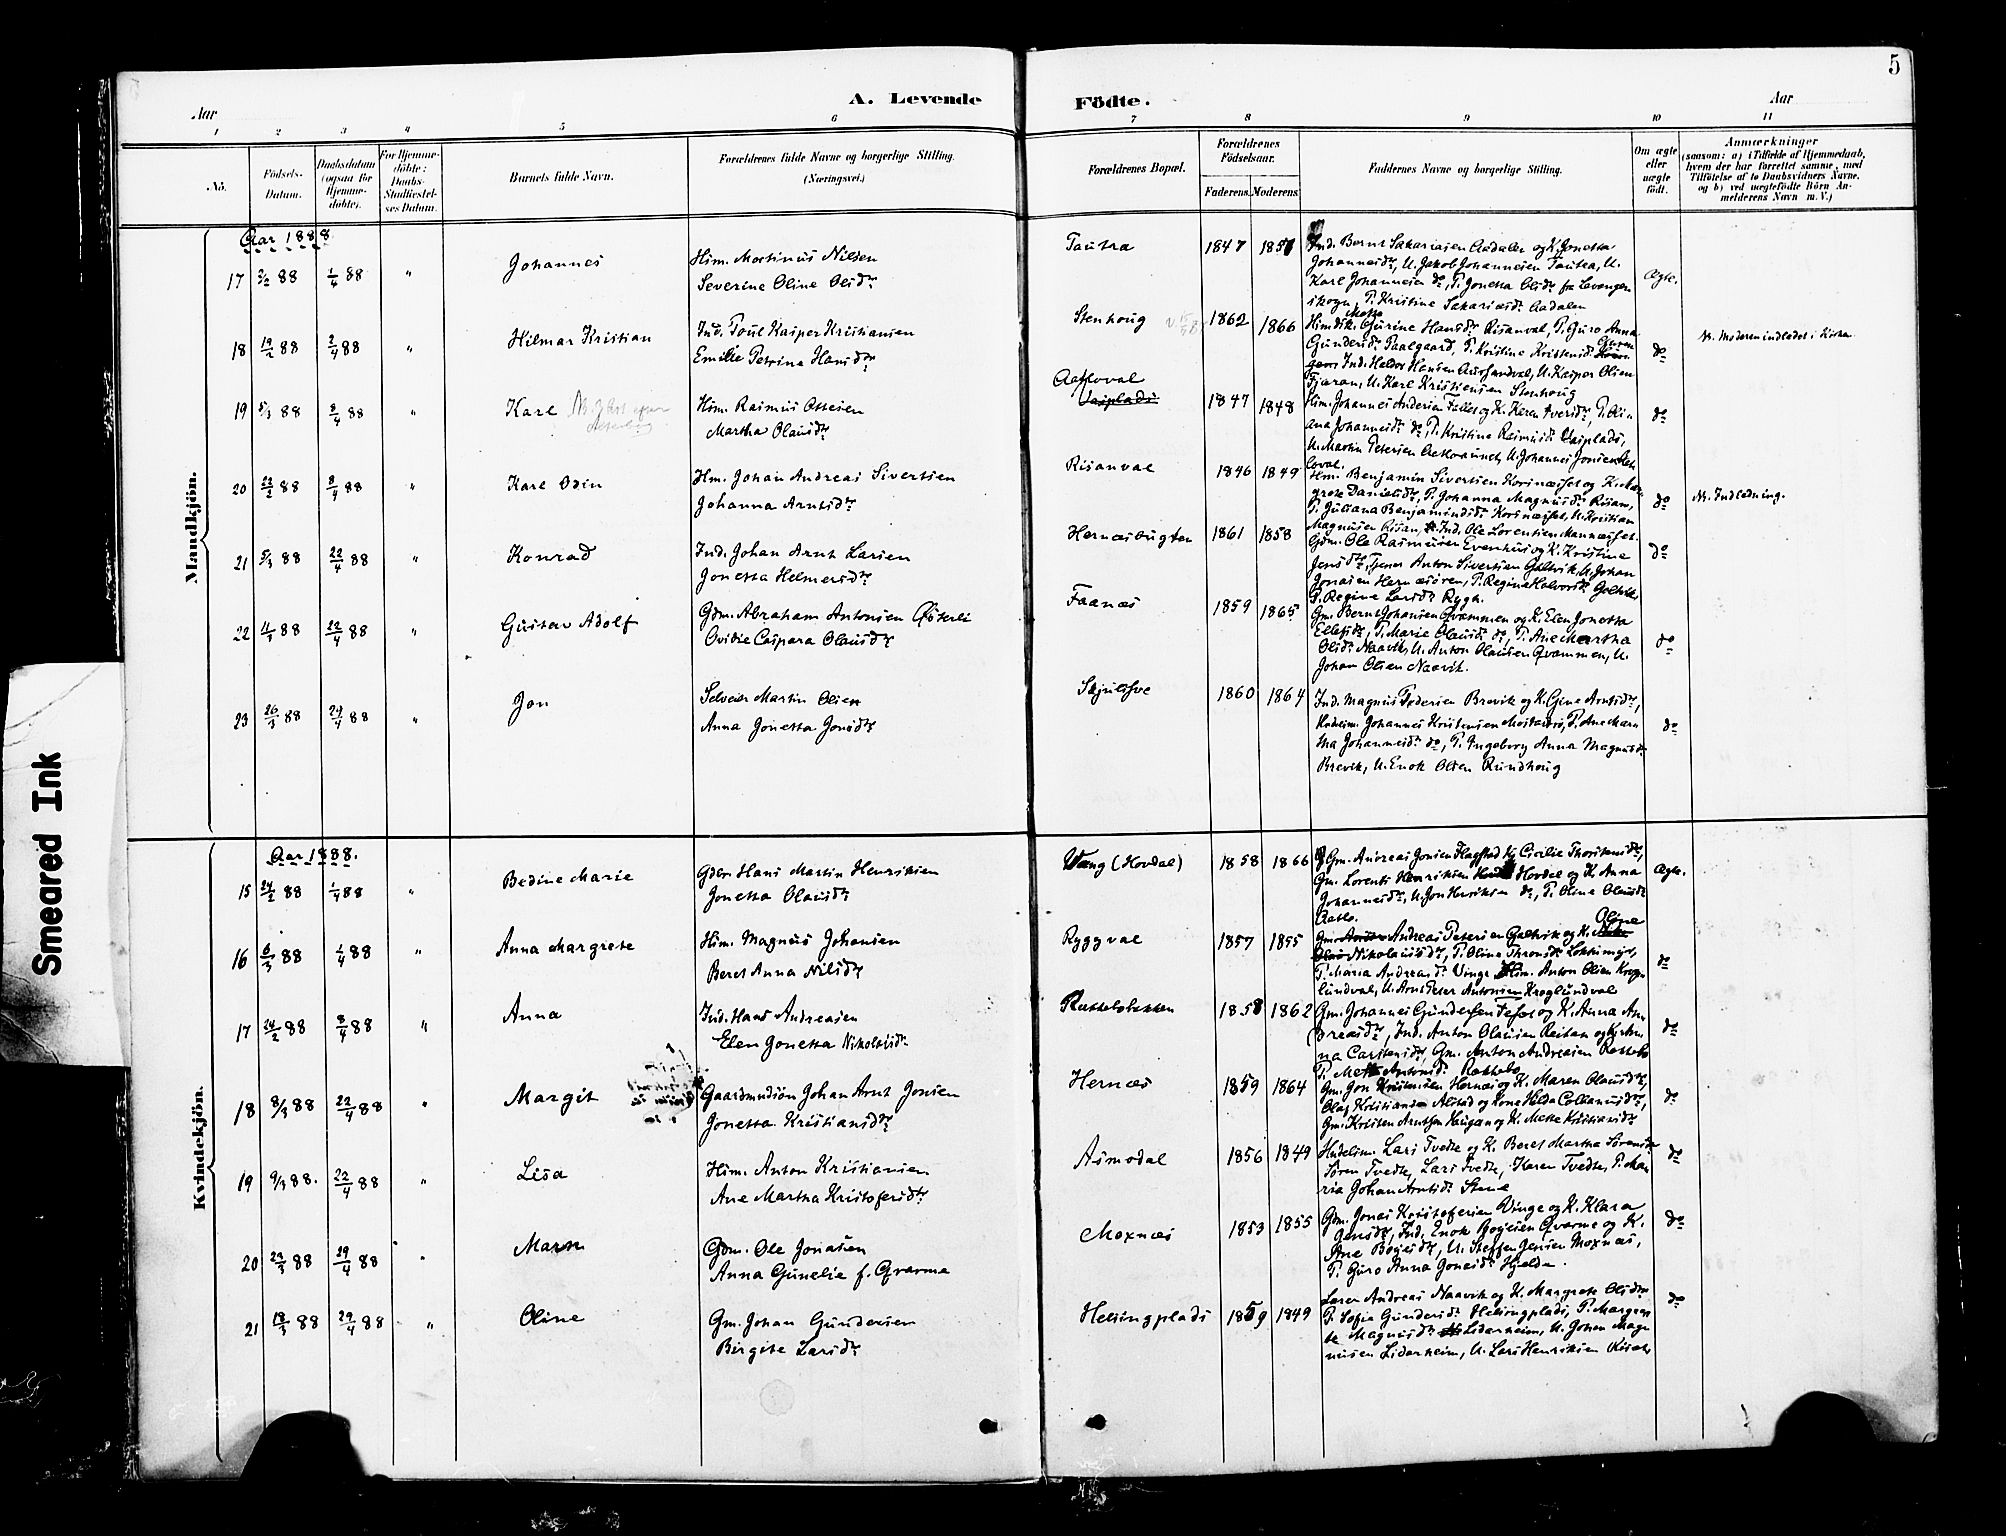 5
Aar
A. Levende
Födte.
Aar
1 2 3 4 5 6 7 8 9 10 11
No.
Födsels-
Datum.
Daabsdatum
(ogsaa for
Hjemme-
döbte).
For Hjemme-
döbte:
Daabs-
Stadfæstel-
ses Datum.
Barnets fulde Navn.
Forældrenes fulde Navne og borgerlige Stilling.
(Næringsvei.)
Forældrenes Bopæl.
Forældrenes
Födselsaar.
Faderens. Moderens.
Faddernes Navne og borgerlige Stilling.
Om ægte
eller
uægte
født.
Anmærkninger
(saasom: a) i Tilfælde af Hjemmedaab,
hvem der har forrettet samme, med
Tilföielse af to Daabsvidners Navne,
og b) ved uægtefödte Börn An-
melderens Navn m. V.)
Mandkjön.
Aar 1888
17 88 1/4 88 " Johannes
Him. Martinus Nilsen
Severine Oline Olsdtr
Tautra 1847
Ind. Bernt Sakariasen Aadalen og K. Jonetta
Johannesdtr, U. Jakob Johannesen Tautra, U.
Karl Johannesen do, P. Jonetta Olsdtr fra Levanger
skogn, P. Kristine Sakariasdtr Aadalen
Ægte.
18 19/2 88 2/4 88 " Hilmar Kristian
Ind. Poul Kasper Kristiansen
Emilie Petrina Hansdtr
Stenhoug 1862 1866
Gurine Hansdtr Risanval, P. Guro Anna
Gundersdtr Paalgaard, P. Kristine Kristensdtr
Ind. Heldor Hansen, U. Kasper Olsen
Fjaran, U. Karl Kristiansen Stenhoug
do
M. Moderen indledet i Kirken
19 5/3 88 8/4 88 " Karl
Him. Rasmus Ottesen
Martha Olausdtr
Vasplads
1847 1848
Him. Johannes Andersen og K. Karen Iversdtr, P. Oli-
ana Johannesdtr do, P. Kristine Rasmusdtr Vasplads,
U. Martin Petersen, U. Johannes Jonsen
do
20 22/2 88 8/4 88 " Karl Odin
Hm. Johan Andreas Sivertsen
Johanna Arntsdtr
Risanval 1846 1849
Hm. Benjamin Sivertsen Korsnæsset og K. Mar-
grete Danielsdtr, P. Johanna Magnusdtr Risan,
P. Juliana Benjaminsdtr Korsnæsset, U. Kristian
Magnusen Risan, Ind. Ole Lorentsen
do
M. Indledning.
21 5/3 88 22/4 88 " Konrad
Ind. Johan Arnt Larsen
Jonetta Helmersdtr
Hernæsbugten 1861 1858
Gdm. Ole Rasmusen Evenhus og K. Kristine
Jensdtr, Tjener Anton Sivertsen Galtvik, U. Johan
Jonasen Hernæsören, P. Regine Halvorsdtr Galtvik,
P. Regine Larsdtr Rygh.
do
22 11/3 88 22/4 88 " Gustav Adolf
Gdm. Abraham Antonsen Østerli
Ovidie Caspara Olausdtr
Faanæs 1859 1865
Gm. Bernt Johansen Qvammen og K. Elen Jonetta
Ellefsdtr, P. Marie Olausdtr do, P. Ane Martha
Olsdtr Naavik, U. Anton Olausen Qvammen, U.
Johan Olsen Naavik.
do
23 26/3 88 29/4 88 " Jon
Selveier Martin Olsen
Anna Jonetta Jonsdtr
1860 1864
Ind. Magnus Pedersen Brevik og K. Gjene Arntsdtr,
Johannes Kristensen, P. Ane Mar-
tha Johannesdtr do, P. Ingeborg Anna Magnusdtr
Brevik, U. Enok Olsen Rundhoug
do
Kvindekjön.
Aar 1888.
15 24/2 88 1/4 88 " Bedine Marie
Gdbr Hans Martin Henriksen
Jonetta Olausdtr
Vang (Hovdal) 1858 1866
Gm. Andreas Jonsen Flagstad K. Cicilie Thorstensdtr,
Gm. Lorents Henriksen Hovdal og K. Anna
Johannesdtr, U. Jon Henriksen do, P. Oline Olausdtr
Ægte.
16 6/3 88 1/4 88 " Anna Margrete
Him. Magnus Johansen
Beret Anna Nilsdtr
Ryggval 1857 1855
Gm. Andreas Petersen Galtvik og K. Oline
Nikolausdtr, P. Oline Thronsdtr Lokkemyr,
P. Maria Andreasdtr Vinge Him. Anton Olsen Krog-
lundval, U. Arnt Peter Antonsen Kroglundval
do
17 24/2 88 8/4 88 " Anna
Ind. Hans Andreasen
Elen Jonetta Nikolaisdtr
1858 1862
Gm. Johannes Gundersen og K. Anna An-
dreasdtr, Ind. Anton Olausen Reitan og K. An-
na Carstensdtr, Gm. Anton Andreasen
P. Mette Antonsdtr
do
18 8/3 88 22/4 88 " Margit
Gaardmdsön Johan Arnt Jonsen
Jonetta Kristiansdtr
Hernæs 1859 1864
Gm. Jon Kristensen Hernæs og K. Maren Olausdtr,
Olaf Kristiansen Alstad og Kone Hilda Colbanusdtr,
Gm. Kristen Arntsen Haugan og K. Mette Kristiansdtr
do
19 9/3 88. 22/4 88 " Lisa
Him. Anton Kristiansen
Ane Martha Kristofersdtr
Aasmodal 1856 1849
Lars Tvedte og K. Beret Martha Sørensdtr
Søren Tvedte, Lars Tvedte, Karen Tvedte, P. Ma-
ria Johan Arntsdtr Stene
do
20 88 29/4 88 " Maren
Gdm. Ole Jonasen
Anna Gunelie f. Qvarme
Moxnæs 1853 1855
Gdm. Jonas Kristofersen Vinge og K. Klara
Jensdtr, Ind. Enok Boyesen Qvarme og K.
Ane Boyesdtr, U. Steffen Jensen Moxnæs,
P. Guro Anna Jonasdtr Hjelde.
do
21 18/3 88 29/4 88 " Oline
Gm. Johan Gundersen
Birgite Larsdtr
Helsingplads 1859 1849
Lærer Andreas Naavik og K. Margrete Olsdtr
P. Sofie Gundersdtr Helsingplads, P. Margre-
te Magnusdtr Lidarheim, U. Johan Mag-
nusen Lidarheim, U. Lars Henriksen
do
Smeared Ink